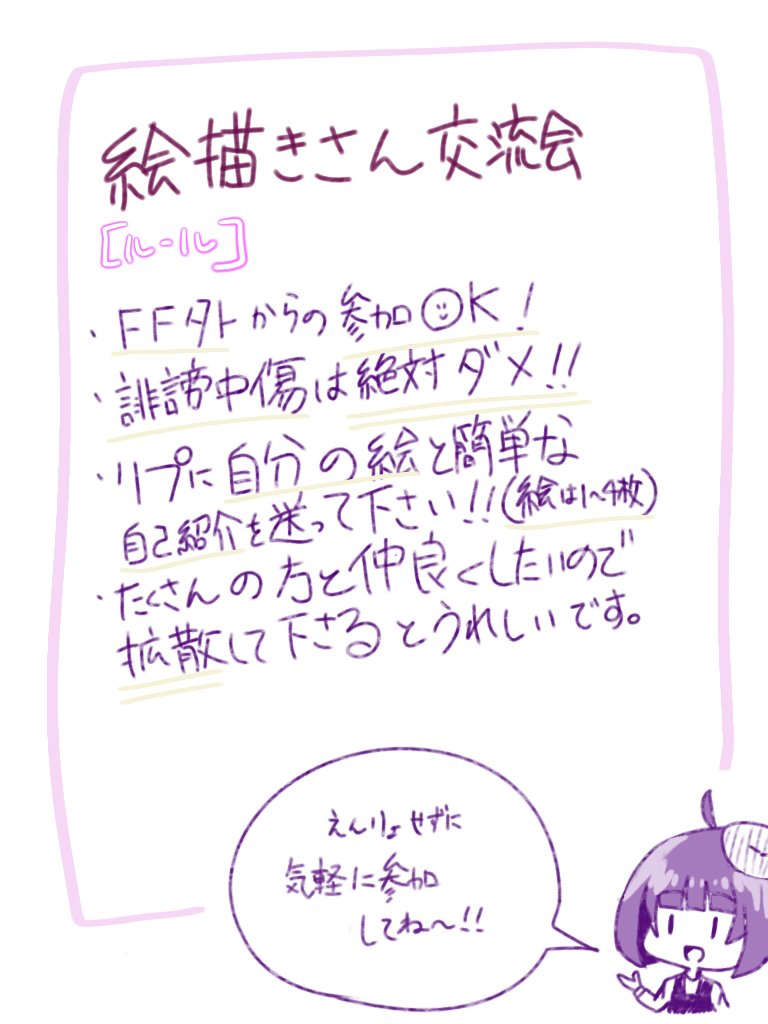 絵描きさん交流会
[ルール]
・FF外からの参加OK!
・誹謗中傷は絶対ダメ!!
・リプに自分の絵と簡単な
自己紹介を送って下さい!!(絵は1~4枚)
・たくさんの方と仲良くしたいので
拡散して下さるとうれしいです。
えんりょせずに
気軽に参加
してね~!!